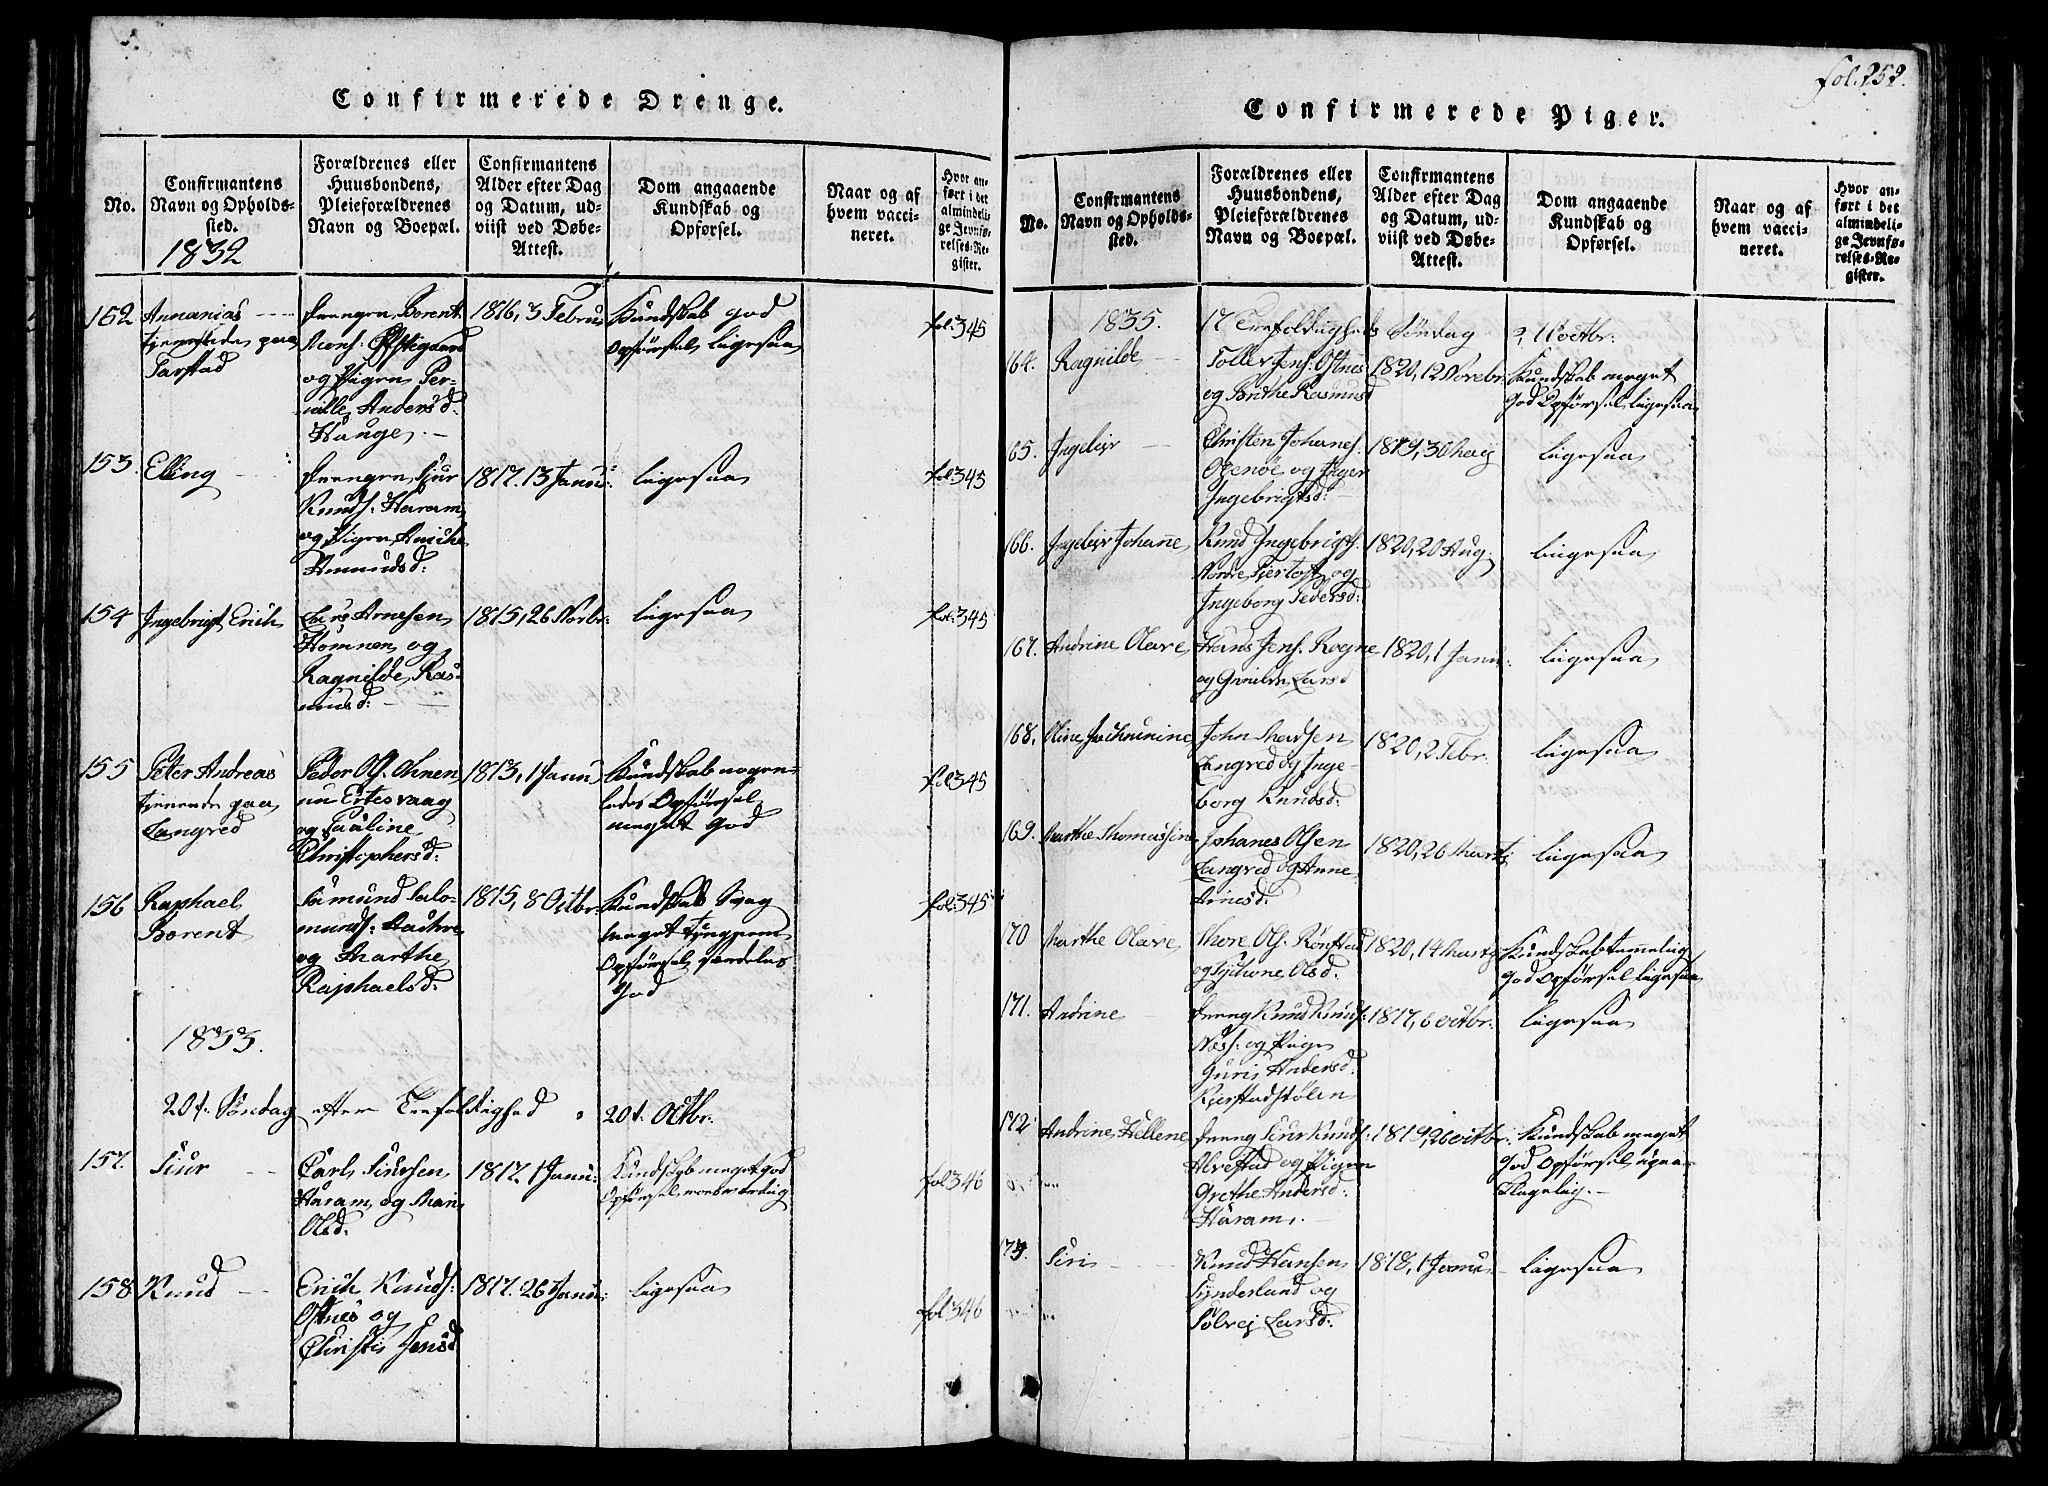 Confirmerede Drenge.
No.
Confirmantens
Navn og Opholds-
sted.
1832
Forældrenes eller
Huusbondens,
Pleieforældrenes
Navn og Boepæl.
Confirmantens
Alder efter Dag
og Datum, ud-
viist ved Døbe-
Attest.
Dom angaaende
Kundskab og
Opførsel.
Naar og af
hvem vacci-
neret.
Hvor an-
ført i det
almindeli-
ge Jevnfø-
relses-Re-
gister.
152
Annanias
tjenende paa
Tarstad
Borent
Mons:
og Pigen Per-
nille Andersd:
Hauge.
1816, 3 Febru
Kundskab god
Opførsel ligesaa
fol:345
153.
Elling
Siur
Knuds: Haram
og Pigen
Amundsd:
1817. 13 Janu:
ligesaa
fol:345
154
Ingebrigt Erich
Lars Arnesen
og
Ragnilde Ras-
musd:
1815, 26 Novbr:
ligesaa
fol:345
155
Peter Andreas
tjenende paa
Langred
Peder Ols.
nu Ertesvaag
og Pauline
Christophersd:
1813, 1 Janu
Kundskab nogen-
ledes Opførsel
meget God
fol:345
156
Raphael
Borent
Samund Salo-
munds:
og Marthe
Raphaelsd:
1815, 8 Octbr:
Kundskab Svag
meget
Opførsel særdeles
God
fol:345
1833.
20d. Søndag efter Treefoldighed 20d. Octbr:
157.
Siur
Carl Siursen
Haram og Mari
Olsd:
1817. 1 Janu:
Kundskab meget god
Opførsel
fol:346
158
Knud
Erich Knuds:
Ostnes og
Christi Jensd
1817. 26 Janu:
ligesaa
fol:346
fol. 252.
Confirmerede Piger.
No.
Confirmantens
Navn og Opholds-
sted.
Forældrenes eller
Huusbondens,
Pleieforældrenes
Navn og Boepæl.
Confirmantens
Alder efter Dag
og Datum, ud-
viist ved Døbe-
Attest.
Dom angaaende
Kundskab og
Opførsel.
Naar og af
hvem vacci-
neret.
Hvor an-
ført i det
almindeli-
ge Jevnfø-
relses-Re-
gister.
1835. 17 Treefoldigheds Søndag octbr:
164.
Ragnilde
Tolles Jens: Ostnes
og Rasmusd
1820, 12 Novebr:
Kundskab meget
god Opførsel ligesaa
165.
Ingelev
Christen Johanes:
og Inger
Ingebrigtsd:
1819, 30 Maij
ligesaa
166.
Ingelev Johanne
Knud Ingebrigts:
Nordre Fjertoft og
Ingeborg Pedersd:
1820, 20 Aug:
ligesaa
167.
Andrine Olave
Hans Jens: Rogne
og Larsd
1820, 1 Janu:
ligesaa
168.
John Madsen
Langred og Inge-
borg Knudsd:
1820, 2 Febr:
ligesaa
169.
Marthe Thomassine
Johanes Olsen
Langred og Anne
Arnesd:
1820, 26 Martj
ligesaa
170
Marthe Olave
Thore Ols: Rønstad
og Olsd:
1820, 14 Martj
Kundskab temmelig
god Opførsel ligesaa
171.
Andrine
Dreng Knud Knuds:
Næss: og Pige
Guri Andersd:
Kjerstadstølen
1817, 6 octbr:
ligesaa
172.
Andrine Hellene
Dreng Siur Knuds:
Alvestad og Pigen
Grethe Andersd:
Haram.
1819, 26 octbr:
Kundskab meget
god Opførsel upaa-
klagelig.
173.
Siri
Knud Hansen
Synderland og
Sølvej Larsd:
1818, 1 Janu:
ligesaa